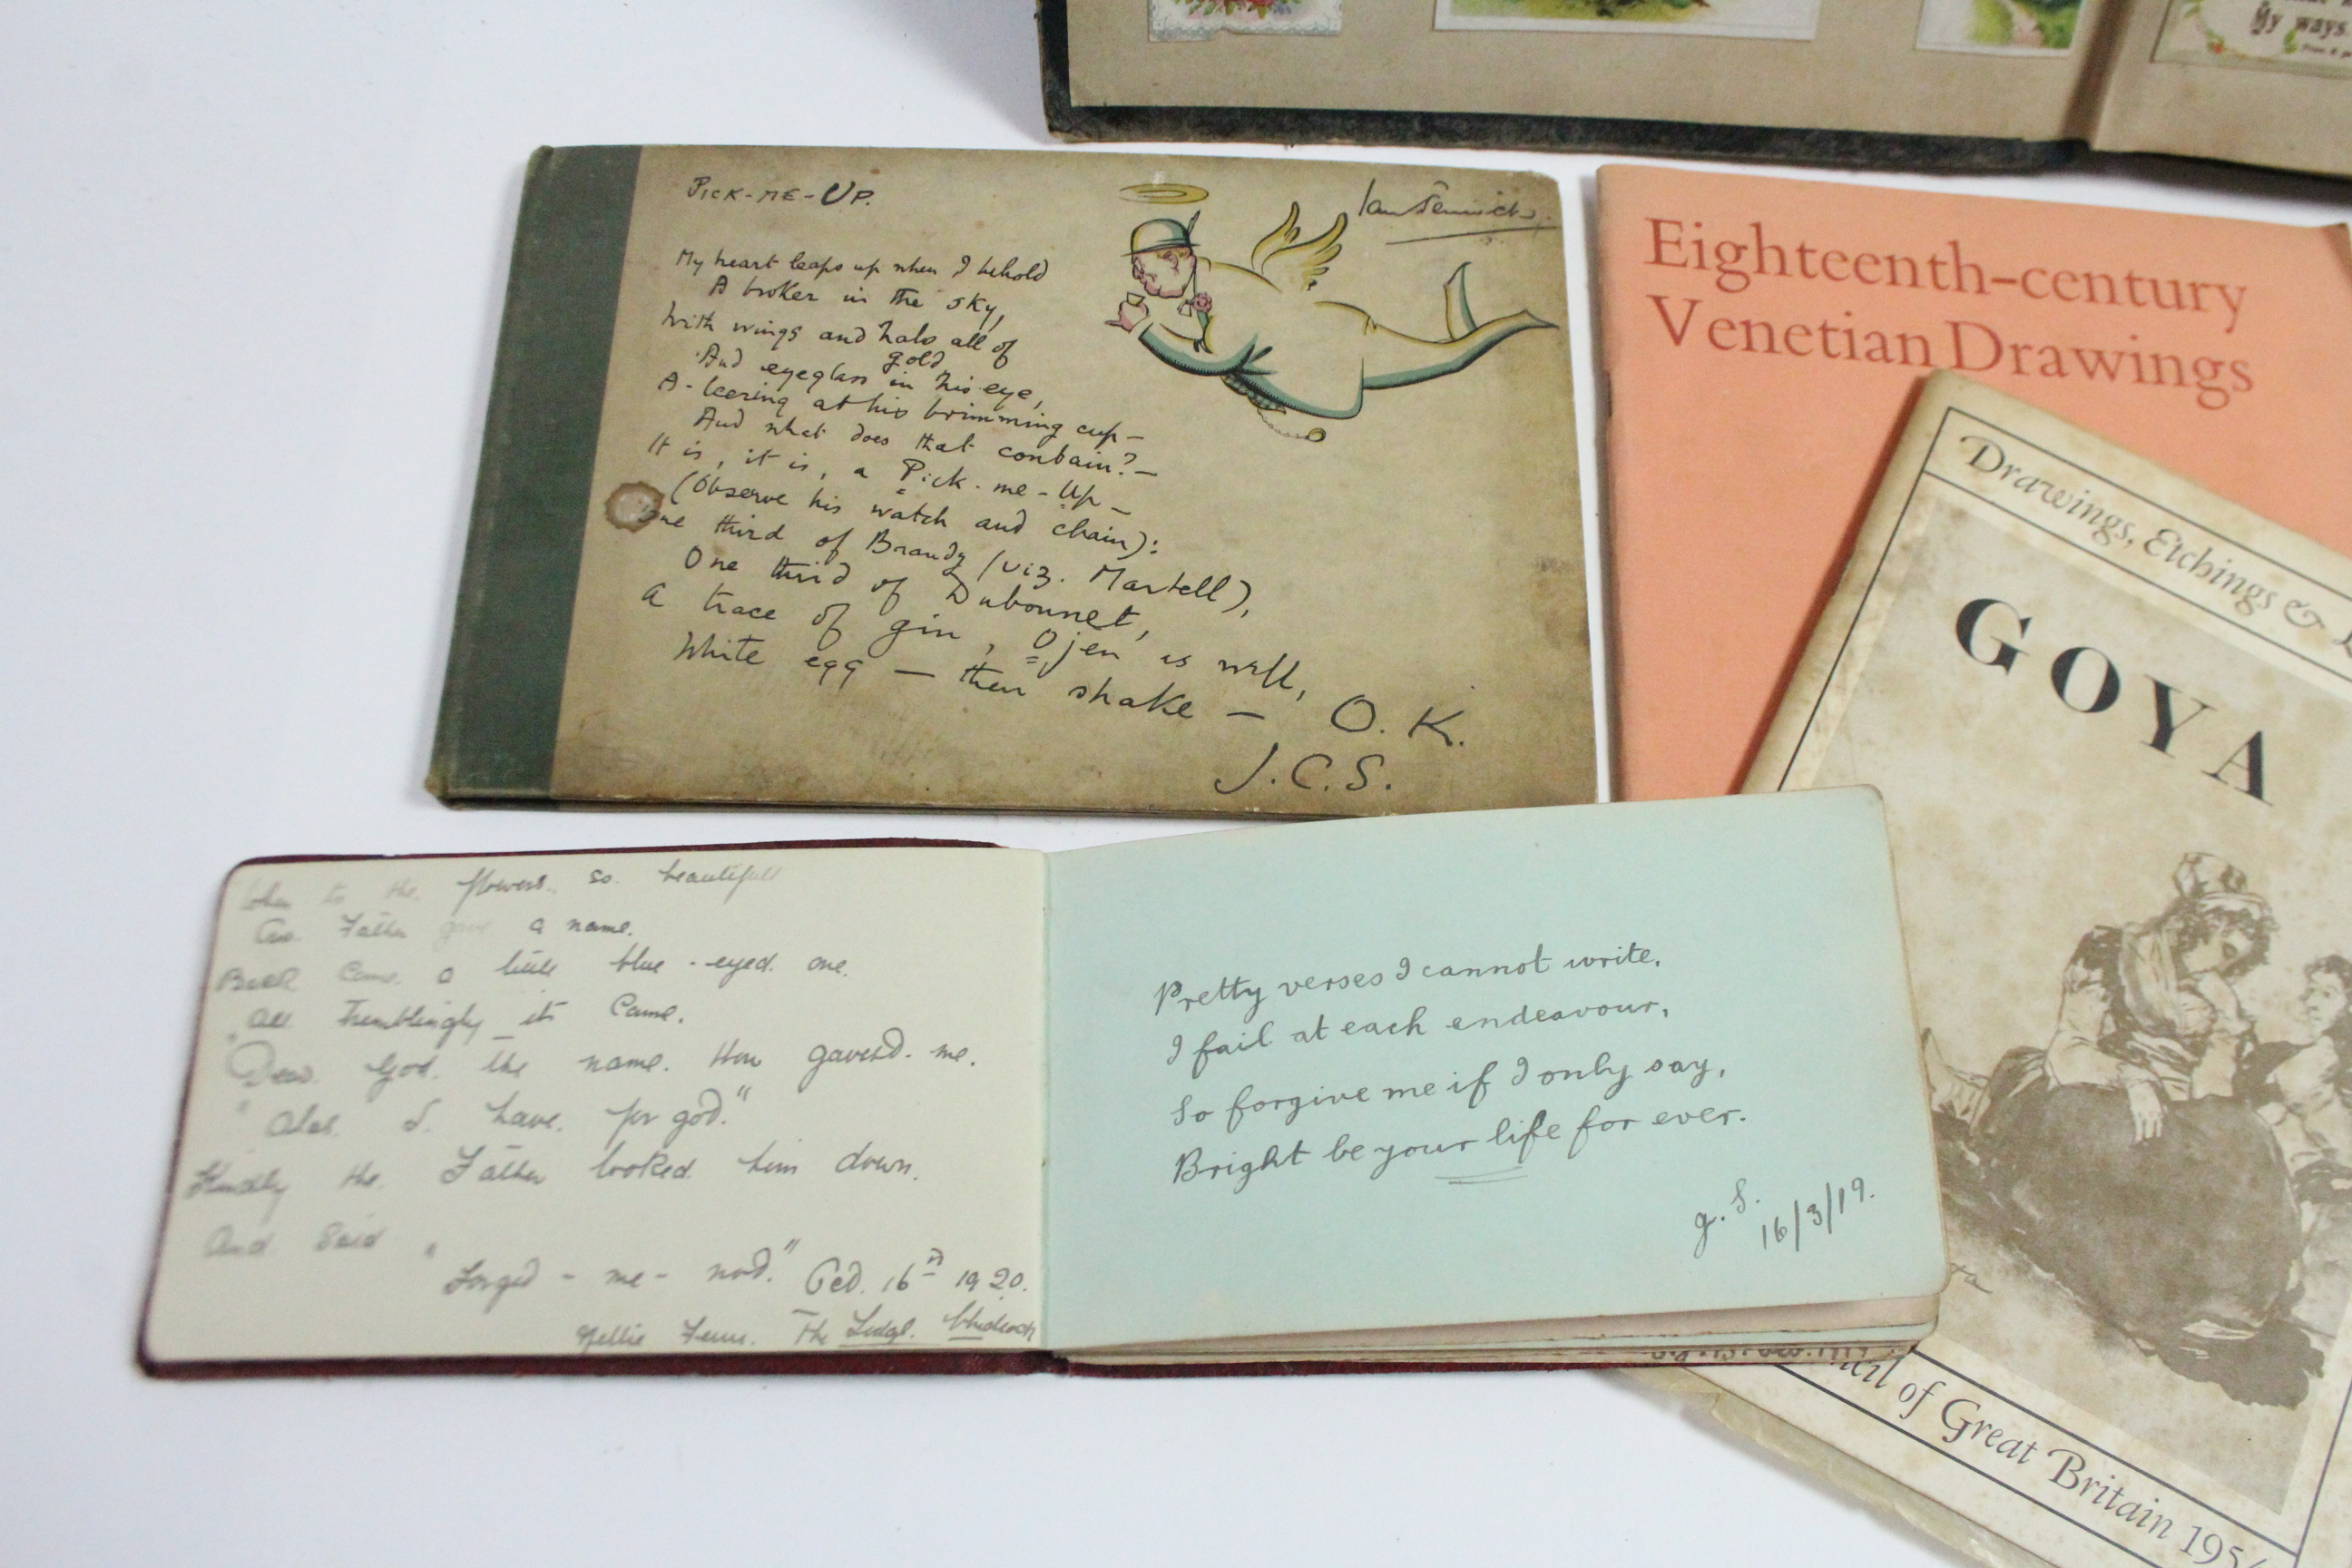 My ways
PICK-ME-UP.
Ian Fenwick.
My heart leaps up when I behold
A broker in the sky,
With wings and halo all of
gold
And eyeglass in his eye,
A-leering at his brimming cup—
And what does that contain?—
It is, it is, a Pick-me-Up—
(Observe his watch and chain):
One third of Brandy (viz. Martell),
One third of Dubonnet,
A trace of gin, Ojen as well,
White egg — then shake — O.K.
J.C.S.
Eighteenth-century
Venetian Drawings
Drawings, Etchings &
GOYA
of Great Britain 195
to the flowers. so. beautifull
Father gave a name.
Back Came. a little blue-eyed. one.
All Tremblingly it Came.
"Dear. God. the name. thou gavesd. me.
"Alas. I. have. for god."
Kindly the. Father looked. him down.
And Said "
Forged - me - nod." Oct. 16th 1920.
Nellie The Lodge. Chideock
Pretty verses I cannot write,
I fail at each endeavour,
So forgive me if I only say,
Bright be your life for ever.
G. S.
16/3/19.